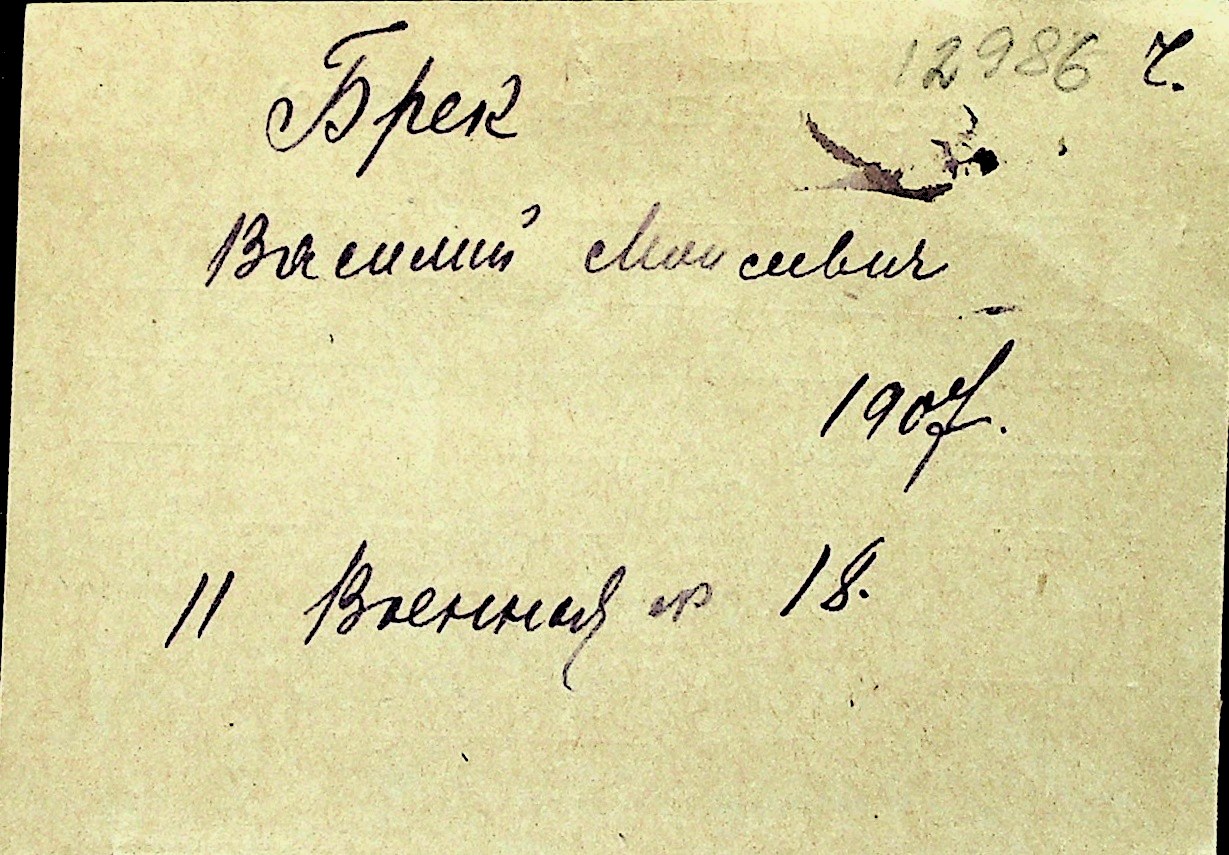 12986 Ч.
Брек
Василий Моисеевич
1907.
11 Военная № 18.